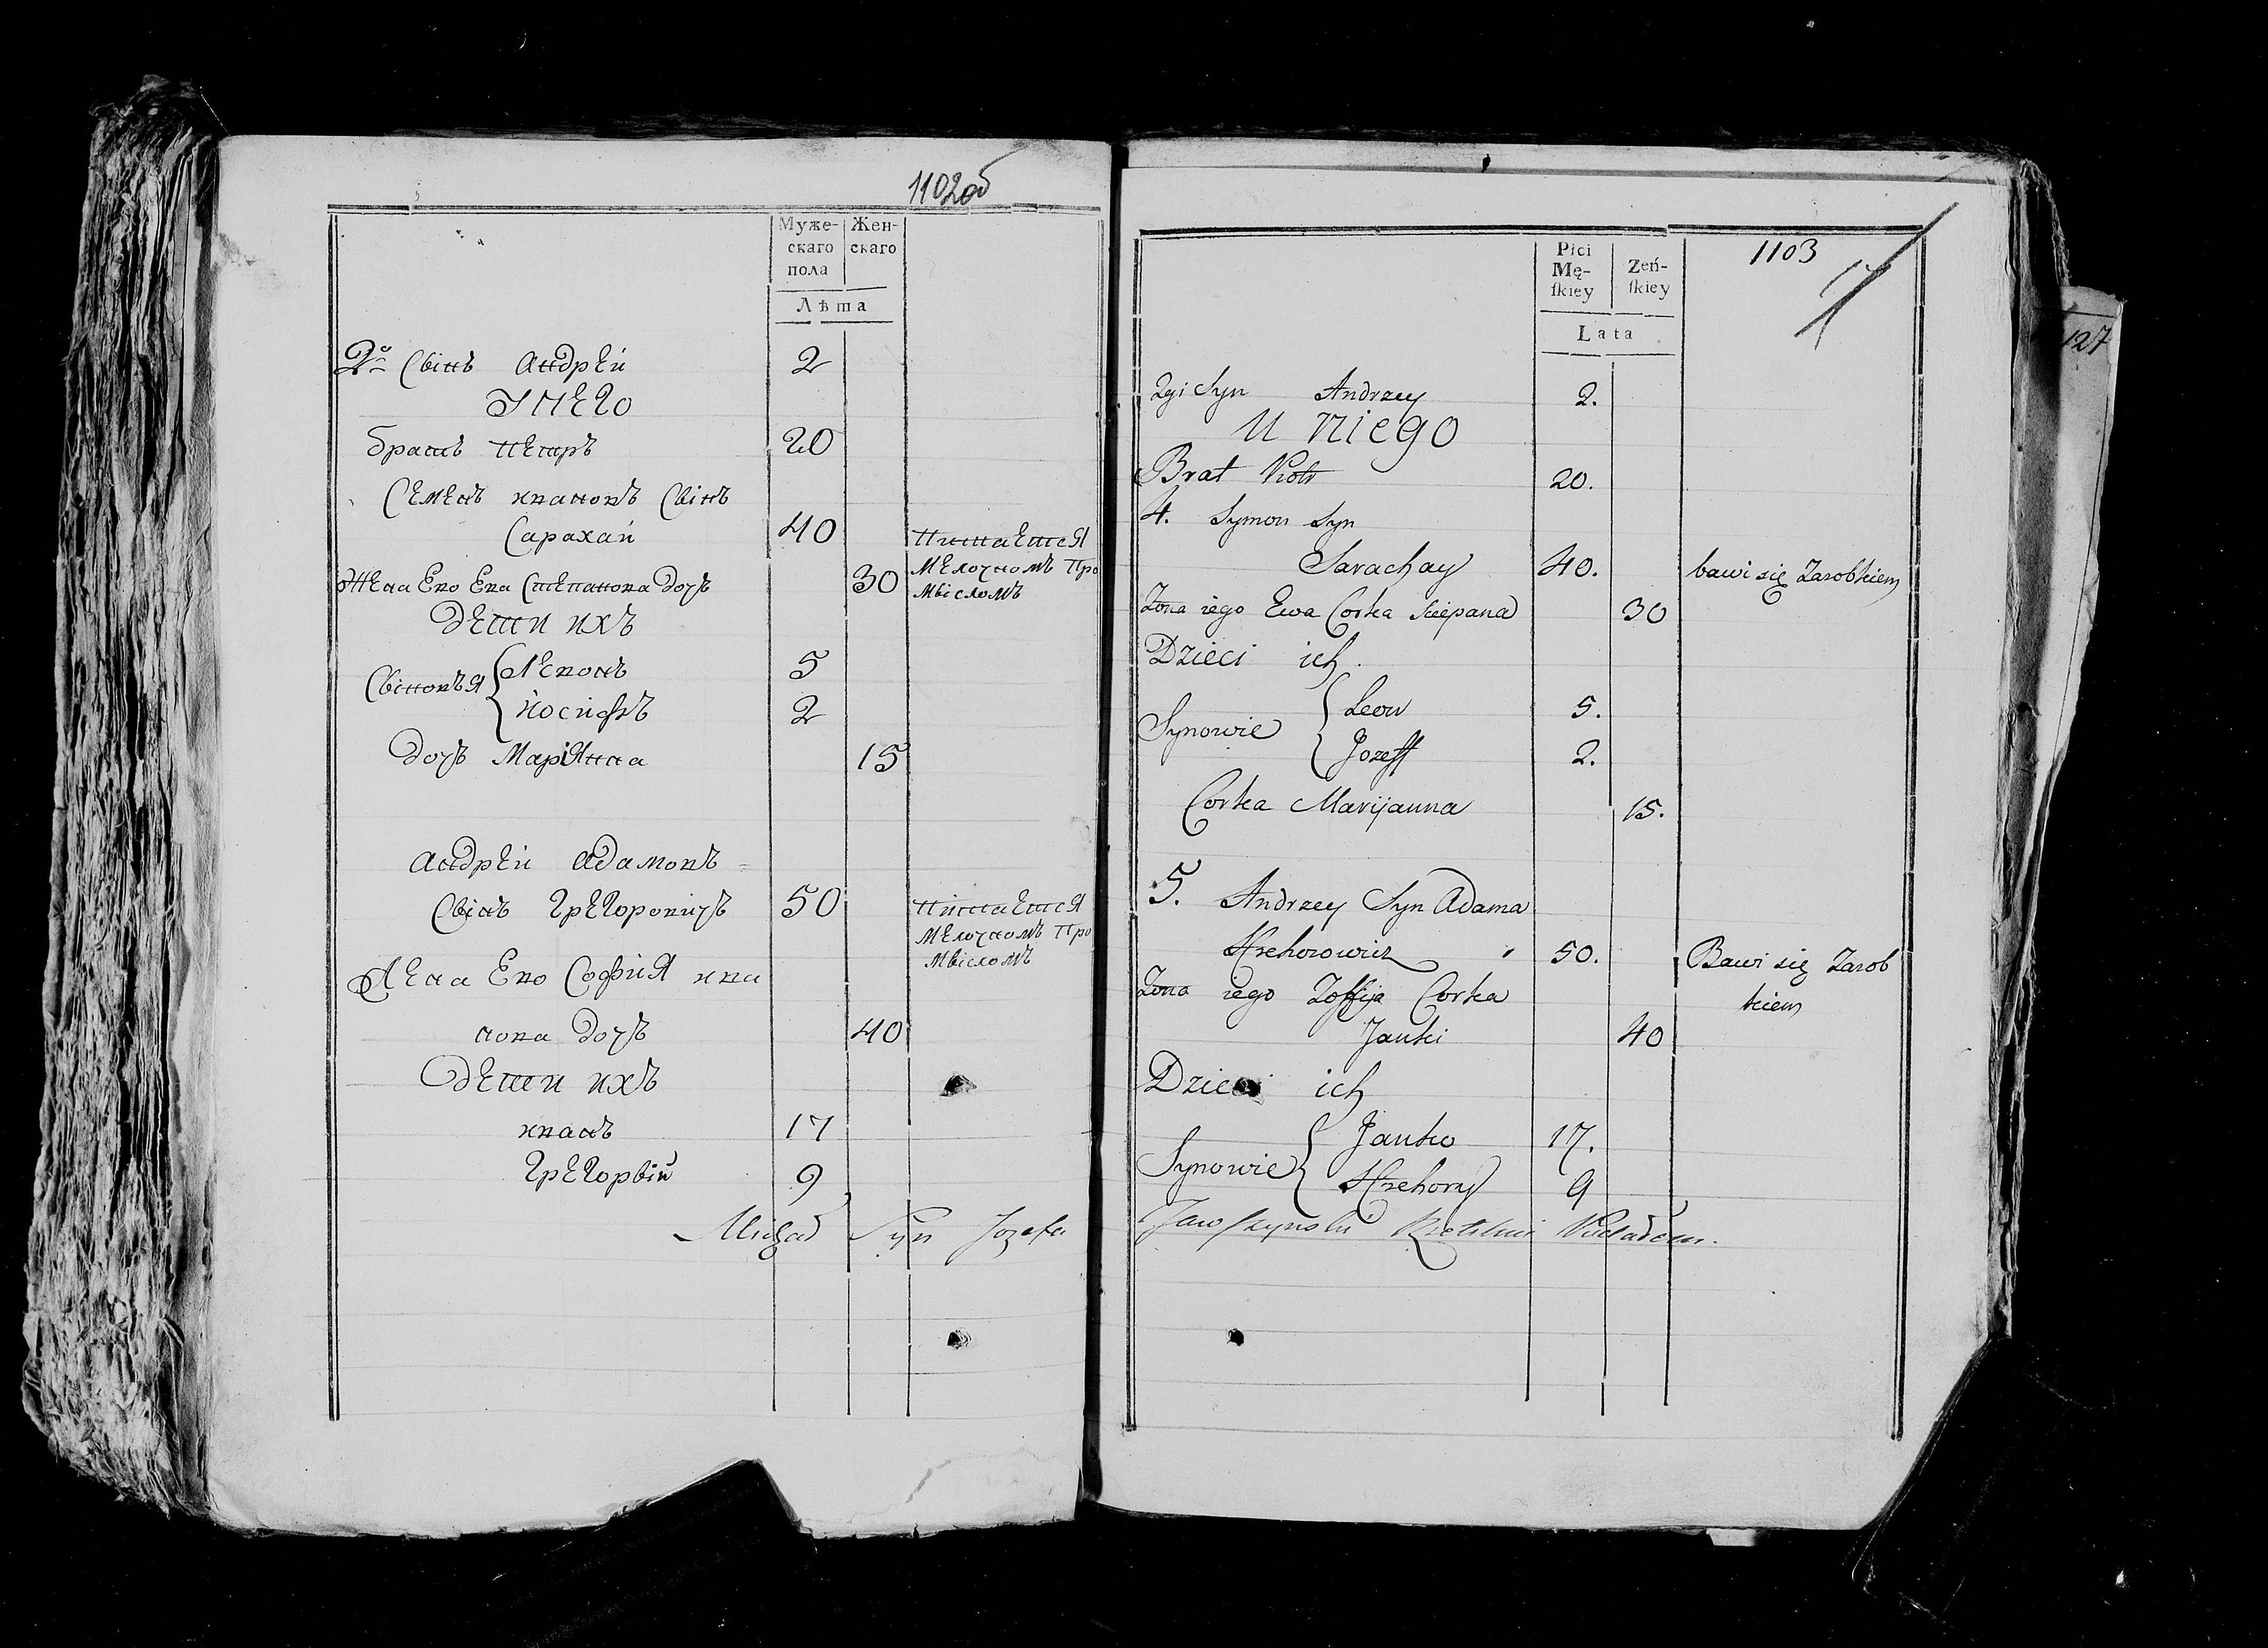 1102об
Муже-
скаго
пола
Жен-
скаго
Лѣта
2й Свінъ Андрей 2
У Него
братъ Петръ 20
Семенъ ивановъ Свінъ
Сарахай 40 питаетсЯ
Жена Ево Ева Степанова Дочъ 30 Мелочномъ Про
Мвісломъ
Дети ихъ
СвіновъЯ Левонъ 5
йосифъ 2
Дочъ МаріЯнна 15
Андрей Адамовъ
Свінъ Грегоровичъ 50 питаетсЯ
Мелочномъ Про
Мвісломъ
Жена Ево СофиЯ ива
нова Дочъ 40
Дети ихъ
иванъ 17
Грегорвій 9
Michał Syn Jozefa
1103
Płci
Mę-
ſkiey
Zeń-
ſkiey
Lata
127
2gi Syn Andrzey 2.
U niego
Brat Piotr 20.
4. Symon Syn
Sarachay 40. bawi się Zarobkiem
Zona iego Ewa Corka Sciepana 30
Dzieci ich.
Synowie Leon 5.
Jozeff 2.
Corka Marijanna 15.
5. Andrzey Syn Adama
Hrehorowicz 50. Bawi się Zarob
kiem
Zona iego Zoffija Corka
Janki 40
Dzieci ich
Synowie Janko 17.
Hrehory 9